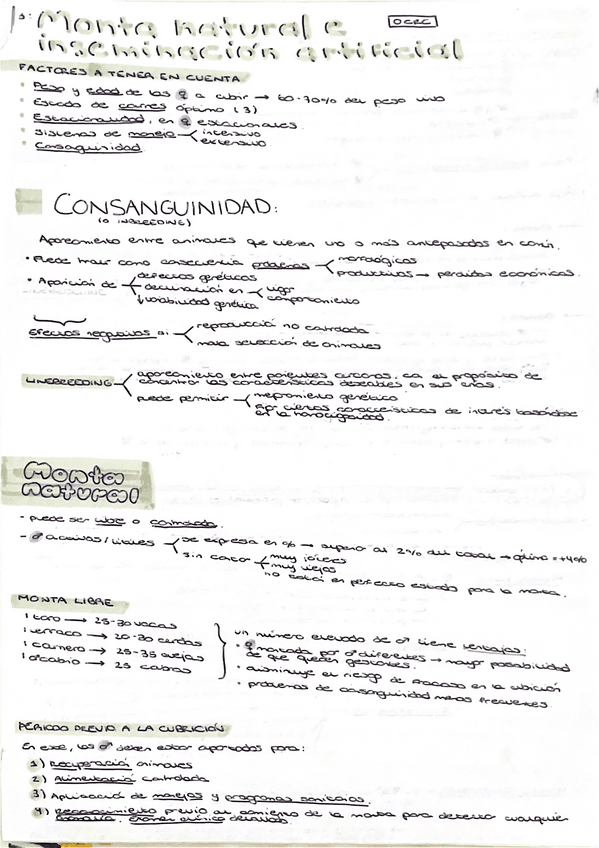 Monta natural e
OCRC
inseminación artificial
FACTORES A TENER EN CUENTA
• Peso y edad de las ♀ a cubrir → 60-70% del peso vivo
• Estado de carnes óptimo (3)
• Estacionalidad, en ♀ estacionales.
• Sistemas de manejo intensivo
extensivo
• Consaguinidad.
CONSANGUINIDAD:
(o INBREEDING)
Apareamiento entre animales que tienen uno o más antepasados en común.
• Puede traer como consecuencia problemas morfológicos
productivos → pérdidas económicas.
• Aparición de defectos genéticos
disminución en vigor
comportamiento
↓ variabilidad genética
Efectos negativos si reproducció no controlada
mala selección de animales
LINEBREEDING apareamiento entre parientes cercanos, con el propósito de
concentrar las características deseables en sus crías.
puede permitir mejoramiento genético
fijar ciertas características de interés basándose
en la homocigosidad.
Monta
natural
- puede ser libre o controlada.
- ♂ activos/útiles se expresa en % → superior al 2% del total → óptimo = +4%
sin contar muy jóvenes
muy viejos
no estén en perfecto estado para la monta.
MONTA LIBRE
1 toro → 25-30 vacas
1 verraco → 20-30 cerdas
1 carnero → 25-35 ovejas
1 macabío → 25 cabras
un número elevado de ♂ tiene ventajas:
• ♀ montada por ♂ diferentes → mayor posibilidad
de que queden gestantes.
• disminuye el riesgo de fracaso en la cubrición
• problemas de consaguinidad menos frecuentes
PERIODO PREVIO A LA CUBRICIÓN
En este, los ♂ deben estar apartados para:
1) Recuperació animales
2) Alimentació controlada
3) Aplicación de manejos y programas sanitarios.
4) Reconocimiento previo al comienzo de la monta para detectar cualquier
anomalía. Examen clínico detallado